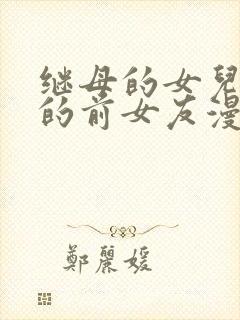 继母的女兒
的前女友漫
鄭麗媛